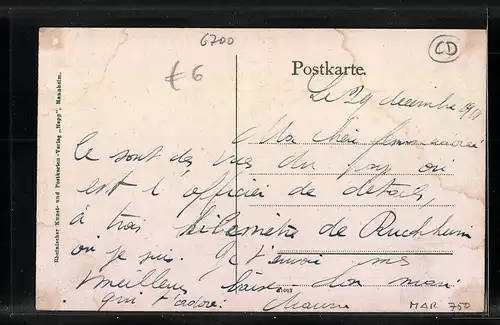 6700
CD
€6
Postkarte.
Le 29 decembre 191
Ma chère femme
Ce sont des vues du pay ou
est l'officier de details,
à trois kilometres de Ruchheim
ou je suis. Je t'envoie mes
meilleurs baisers. Ton mari
qui t'adore.
MAR 750
Rheinischer Kunst- und Postkarten-Verlag „Hepp", Mannheim.